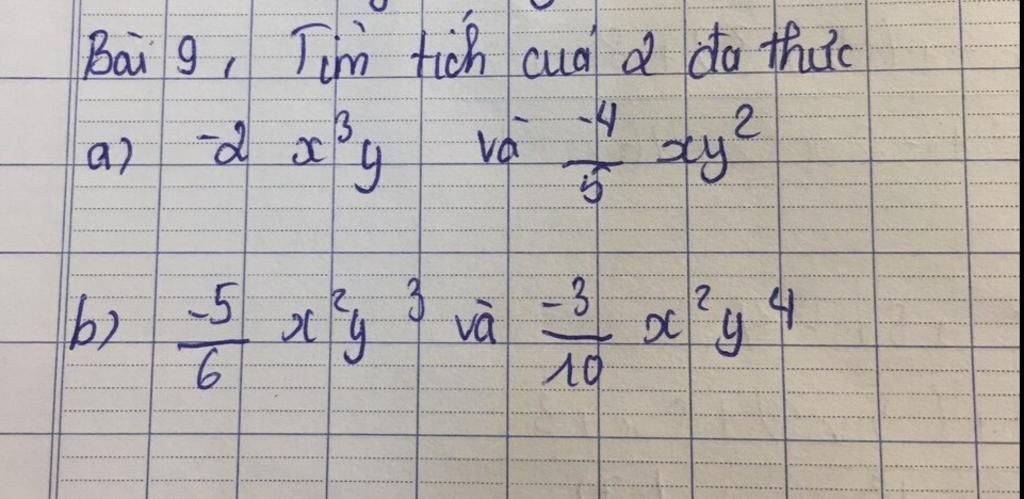 Bài 9, Tìm tích cuả 2 đa thức
a) -2 x³y và -4/5 xy²
b) -5/6 x²y³ và -3/10 x²y⁴